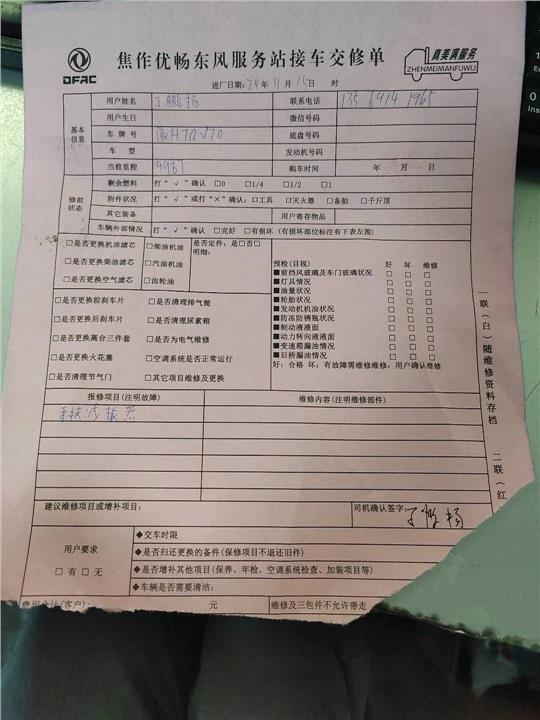 DFAC
焦作优畅东风服务站接车交修单
真美满服务
ZHENMEIMANFUWU
进厂日期:24年11月15日 时
基本信息
用户姓名 丁鹏杨 联系电话 135 6914 1965
用户生日 微信号码
车牌号 底盘号码
车 型 发动机号码
当前里程 购车时间 年 月 日
修前状态
剩余燃料 打“√”确认 □0 □1/4 □1/2 □1
附件状况 打“√”或打“×”确认:□工具 □灭火器 □备胎 □千斤顶
其它装备 用户寄存物品
车辆外部情况 打“√”确认 □完好 □有损坏(有损坏部位标注有下表左图)
□是否更换机油滤芯 □柴油机油 是否定件:是□否□
明细:
□是否更换柴油滤芯 □汽油机油
□是否更换空气滤芯 □齿轮油
□是否更换前刹车片 □是否清理排气筒
□是否更换后刹车片 □是否清理尿素箱
□是否更换离合三件套 □是否为电气维修
□是否更换火花塞 □空调系统是否正常运行
□是否清理节气门 □其它项目维修及更换
预检(目视) 好 坏 维修
■前挡风玻璃及车门玻璃状况 □ □ □
■灯具情况 □ □ □
■油量状况 □ □ □
■轮胎状况 □ □ □
■发动机机油状况 □ □ □
■防冻防锈瓶状况 □ □ □
■制动液液面 □ □ □
■动力转向液液面 □ □ □
■变速箱漏油情况 □ □ □
■后桥漏油情况 □ □ □
好:合格 坏:有故障需维修维修:用户确认维修
报修项目(注明故障) 维修内容(注明维修部件)
建议维修项目或增补项目: 司机确认签字: 丁鹏杨
用户要求
□有□无
◆交车时限
◆是否归还更换的备件(保修项目不退还旧件)
◆是否增补其他项目(保养、年检、空调系统检查、加装项目等)
◆车辆是否需要清洁:
费用合计(客户): 元 维修及三包件不允许带走
一联(白)随维修资料存档 二联(红